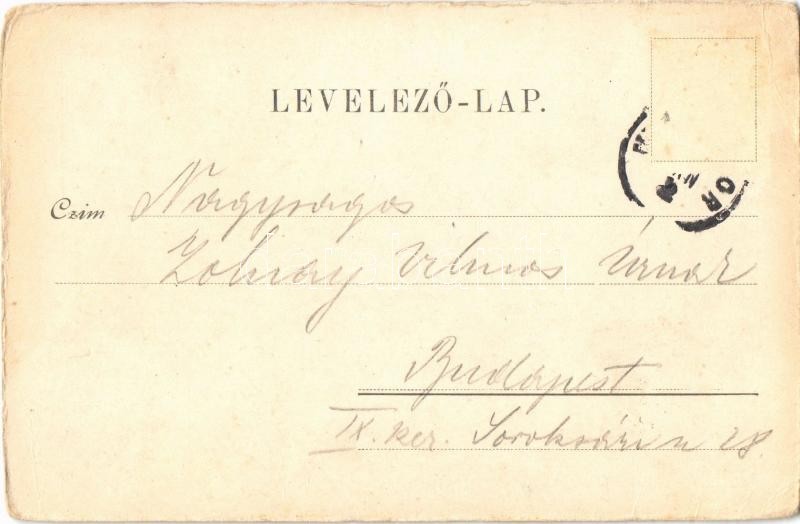 LEVELEZŐ-LAP.
Czim Nagyságos
Zolnay Vilmos Úrnak
Budapest
IX. ker. Soroksári u 28.